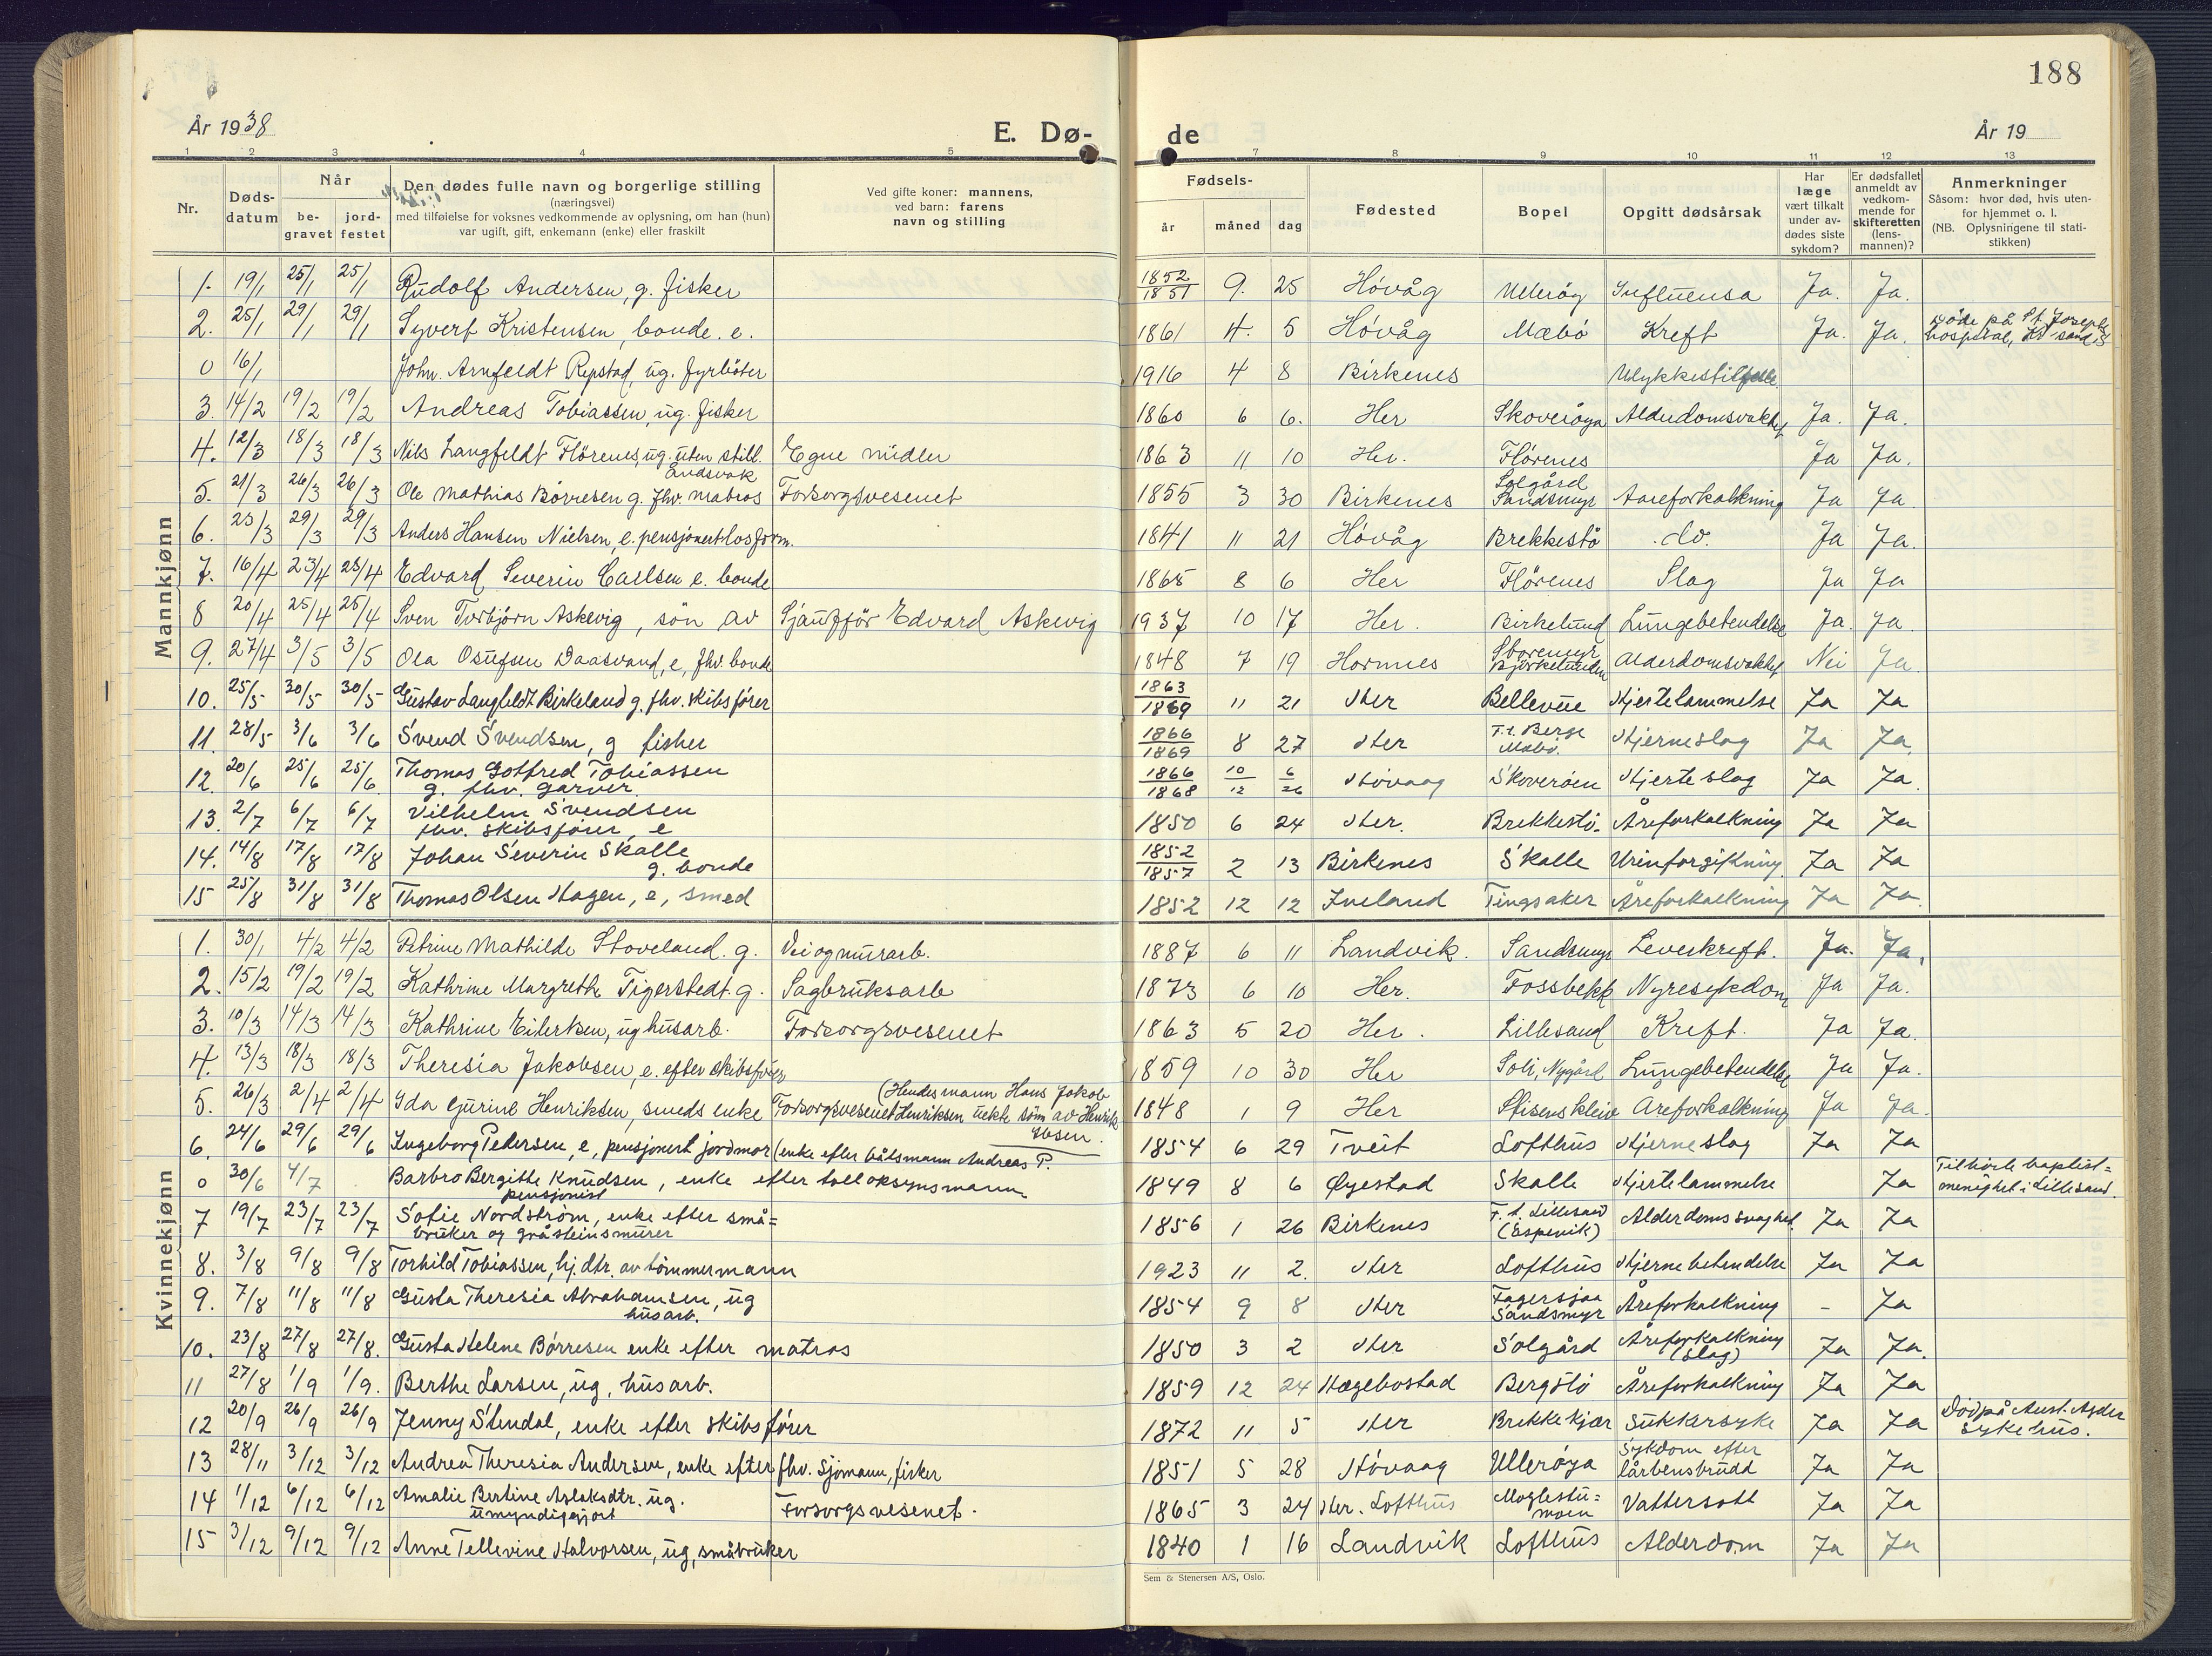 188
År 1938
E. Dø-
de
År 19
1 2 3 3 4 5 7 8 9 10 11 12 13
Nr.
Døds-
datum
Når
be-
gravet
jord-
festet
Den dødes fulle navn og borgerlige stilling
(næringsvei)
med tilføielse for voksnes vedkommende av oplysning, om han (hun)
var ugift, gift, enkemann (enke) eller fraskilt
Ved gifte koner: mannens,
ved barn: farens
navn og stilling
Fødsels-
år måned dag
Fødested
Bopel
Opgitt dødsårsak
Har
læge
vært tilkalt
under av-
dødes siste
sykdom?
Er dødsfallet
anmeldt av
vedkom-
mende for
skifteretten
(lens-
mannen)?
Anmerkninger
Såsom: hvor død, hvis uten-
for hjemmet o. l.
(NB. Oplysningene til stati-
stikken)
Mannkjønn
1. 19/1 25/1 25/1 Rudolf Andersen, g. fisker 1852/1851 9. 25 Høvåg Ulerøy Influensa Ja. Ja.
2. 25/1 29/1 29/1 Syvert Kristensen, bonde. e. 1861 4. 5 Høvåg Mæbø Kreft Ja. Ja. Døde på St. Josephs hospital, Kr.sand S
0 16/1 John. Arnfeldt Repstad, ug. fyrbøter 1916 4 8 Birkenes Ulykkestilfelle
3. 14/2 19/2 19/2 Andreas Tobiassen, ug. fisker 1860 6 6. Her Skoverøya Alderdomsvakhet Ja. Ja.
4. 12/3 18/3 18/3 Nils Langfeldt Flørenes, ug. uten still. Åndsvak Egne midler 1863 11 10 Her. Flørenes Ja Ja.
5. 21/3 26/3 26/3 Ole Mathias Børresen g. fhv. matros Forsorgsvesenet 1855 3 30 Birkenes Solgård Sandsmyr Aareforkalkning Ja Ja
6. 23/3 29/3 29/3 Anders Hansen Nielsen, e. pensjonert losform. 1841 11 21 Høvåg Brekkestø do. Ja Ja.
7. 16/4 23/4 23/4 Edvard Severin Carlsen e. bonde 1865 8 6 Her Flørenes Slag Ja Ja
8 20/4 25/4 25/4 Sven Torbjørn Askevig, søn av Sjauffør Edvard Askevig 1937 10 17 Her. Birkelund Lungebetendelse Ja. Ja.
9. 27/4 3/5 3/5 Ola Osufsen Daasvand, e, fhv. bonde 1848 7 19 Hornnes Storemyr Bjørkelunden Alderdomsvakhet Nei Ja.
10. 25/5 30/5 30/5 Gustav Langfeldt Birkeland g. fhv. skibsfører 1863/1869 11 21 Her Bellevue Hjertelammelse Ja Ja
11. 28/5 3/6 3/6 Svend Svendsen, g fisker 1866/1869 8 27 Her F.t. Berge Mæbø. Hjerneslag Ja Ja.
12. 20/6 25/6 25/6 Thomas Gotfred Tobiassen g. fhv. garver 1866/1868 10/12 6/26 Høvaag Skoverøen Hjerteslag Ja Ja.
13. 2/7 6/7 6/7 Vilhelm Svendsen fhv. skibsfører, e 1850 6 24 Her. Brekkestø. Åreforkalkning Ja Ja
14. 14/8 17/8 17/8 Johan Severin Skalle g. bonde 1852/1857 2 13 Birkenes Skalle Urinforgiftning Ja Ja
15 25/8 31/8 31/8 Thomas Olsen Hagen, e, smed 1852 12 12 Iveland Tingsaker Åreforkalkning Ja Ja.
Kvinnekjønn
1. 30/1 4/2 4/2 Petrine Mathilde Stoveland. g. Vei og murarb. 1887 6 11 Landvik. Sandsmyr Leverkreft. Ja. Ja.
2. 15/2 19/2 19/2 Kathrine Margrethe Tigerstedt. g. Sagbruksarb 1873 6 10 Her. Fossbekk Nyresykdom Ja Ja.
3. 10/3 14/3 14/3 Kathrine Eilertsen, ug husarb. Forsorgsvesenet 1863 5 20 Her. Lillesand Kreft. Ja Ja.
4. 13/3 18/3 18/3 Theresia Jakobsen, e. efter skibsfører 1859 10 30 Her Soli, Nygård Lungebetendelse Ja Ja.
5. 26/3 2/4 2/4 Ida Gurine Henriksen, smeds enke Forsorgsvesenet (Hendes mann Hans Jakob Henriksen uekte søn av Henrik Ibsen. 1848 1 9 Her Stisens kleiv Areforkalkning Ja Ja.
6. 24/6 29/6 29/6 Ingeborg Pedersen, e, pensjonert jordmor (enke efter båtsmann Andreas P. 1854 6 29 Tveit Lofthus Hjerneslag Ja Ja
0 30/6 4/7 Barbro Bergithe Knudsen, enke efter tolloksynsmann pensjonist 1849 8 6 Øyestad Skalle Hjertelammelse Ja Tilhørte baptist= menighet i Lillesand.
7 19/7 23/7 23/7 Sofie Nordstrøm, enke efter små= bruker og gråsteinsmurer 1856 1 26 Birkenes F.t. Lillesand (Espevik) Alderdomssvaghet Ja Ja
8. 3/8 9/8 9/8 Torhild Tobiassen, hj. dtr. av tømmermann 1923 11 2. Her Lofthus Hjernebetendelse Ja Ja
9. 7/8 11/8 11/8 Gusta Theresia Abrahamsen, ug husarb. 1854 9 8 Her Fagersjaa Sandsmyr Åreforkalkning - Ja
10. 23/8 27/8 27/8. Gusta Helene Børresen enke efter matros 1850 3 2 Her Solgård Åreforkalkning (slag) Ja Ja.
11 27/8 1/9 1/9. Berthe Larsen, ug, husarb. 1859 12 24 Hægebostad Bergstø Åreforkalkning Ja Ja
12 20/9 26/9 26/9 Jenny Stendal, enke efter skibsfører 1872 11 5 Her Brekkekjær Sukkersyke Ja Ja Død på Aust-Agder sykehus.
13 28/11 3/12 3/12 Andrea Theresia Andersen, enke efter fhv. sjømann, fisker 1851 5 28 Høvaag Ullerøya Sykdom efter lårbensbrudd Ja Ja
14 1/12 6/12 6/12 Amalie Bertine Aslaksdtr. ug. umyndiggjort Forsorgsvesenet. 1865 3 24 Her. Lofthus Moglestu= moen Vattersott Ja Ja
15 3/12 9/12 9/12 Anne Tellevine Halvorsen, ug, småbruker 1840 1 16 Landvik Lofthus Alderdom Ja Ja
Sem & Stenersen A/S, Oslo.